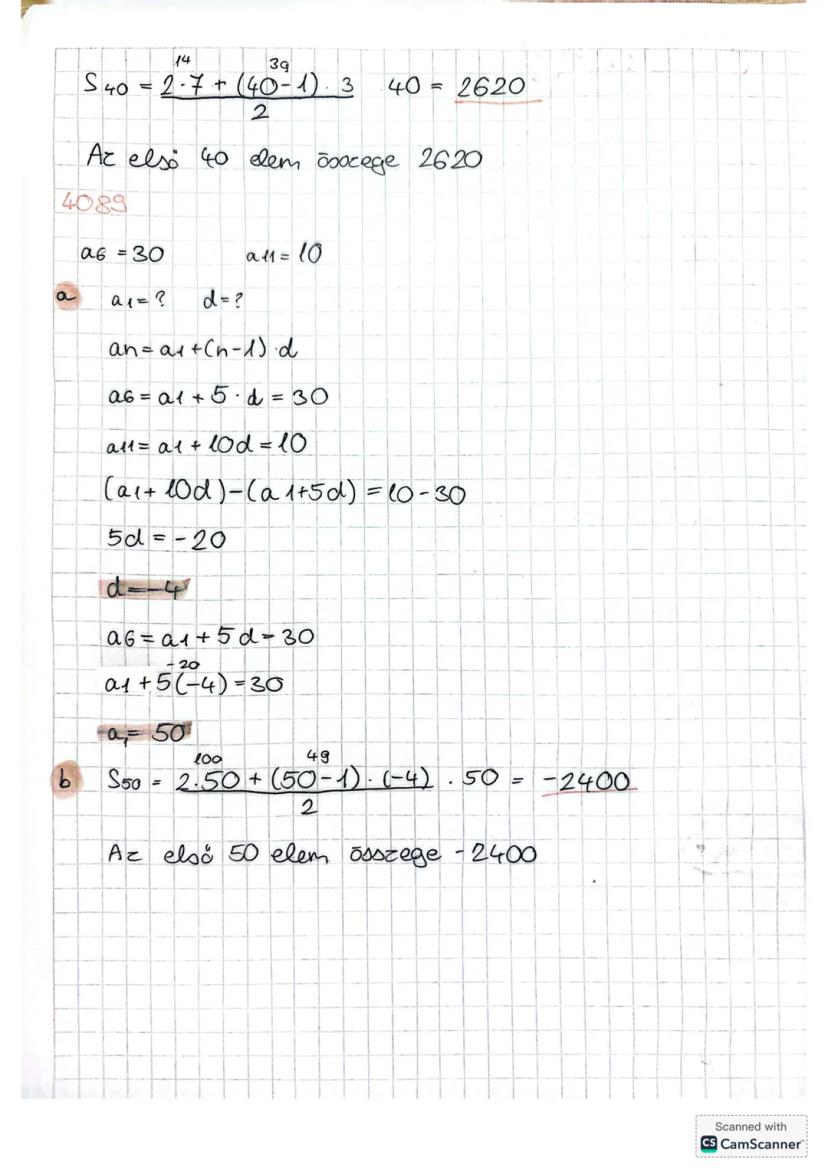 14 39
S40 = 2·7 + (40-1)·3 / 2 40 = 2620
Az első 40 elem összege 2620
4089
a6 = 30 a11 = 10
a a1 = ? d = ?
an = a1 + (n-1)·d
a6 = a1 + 5·d = 30
a11 = a1 + 10d = 10
(a1 + 10d) - (a1+5d) = 10 - 30
5d = -20
d = -4
a6 = a1 + 5d = 30
-20
a1 + 5(-4) = 30
a1 = 50
100 49
b S50 = 2·50 + (50-1)·(-4) / 2 · 50 = -2400
Az első 50 elem összege -2400
Scanned with
CS CamScanner